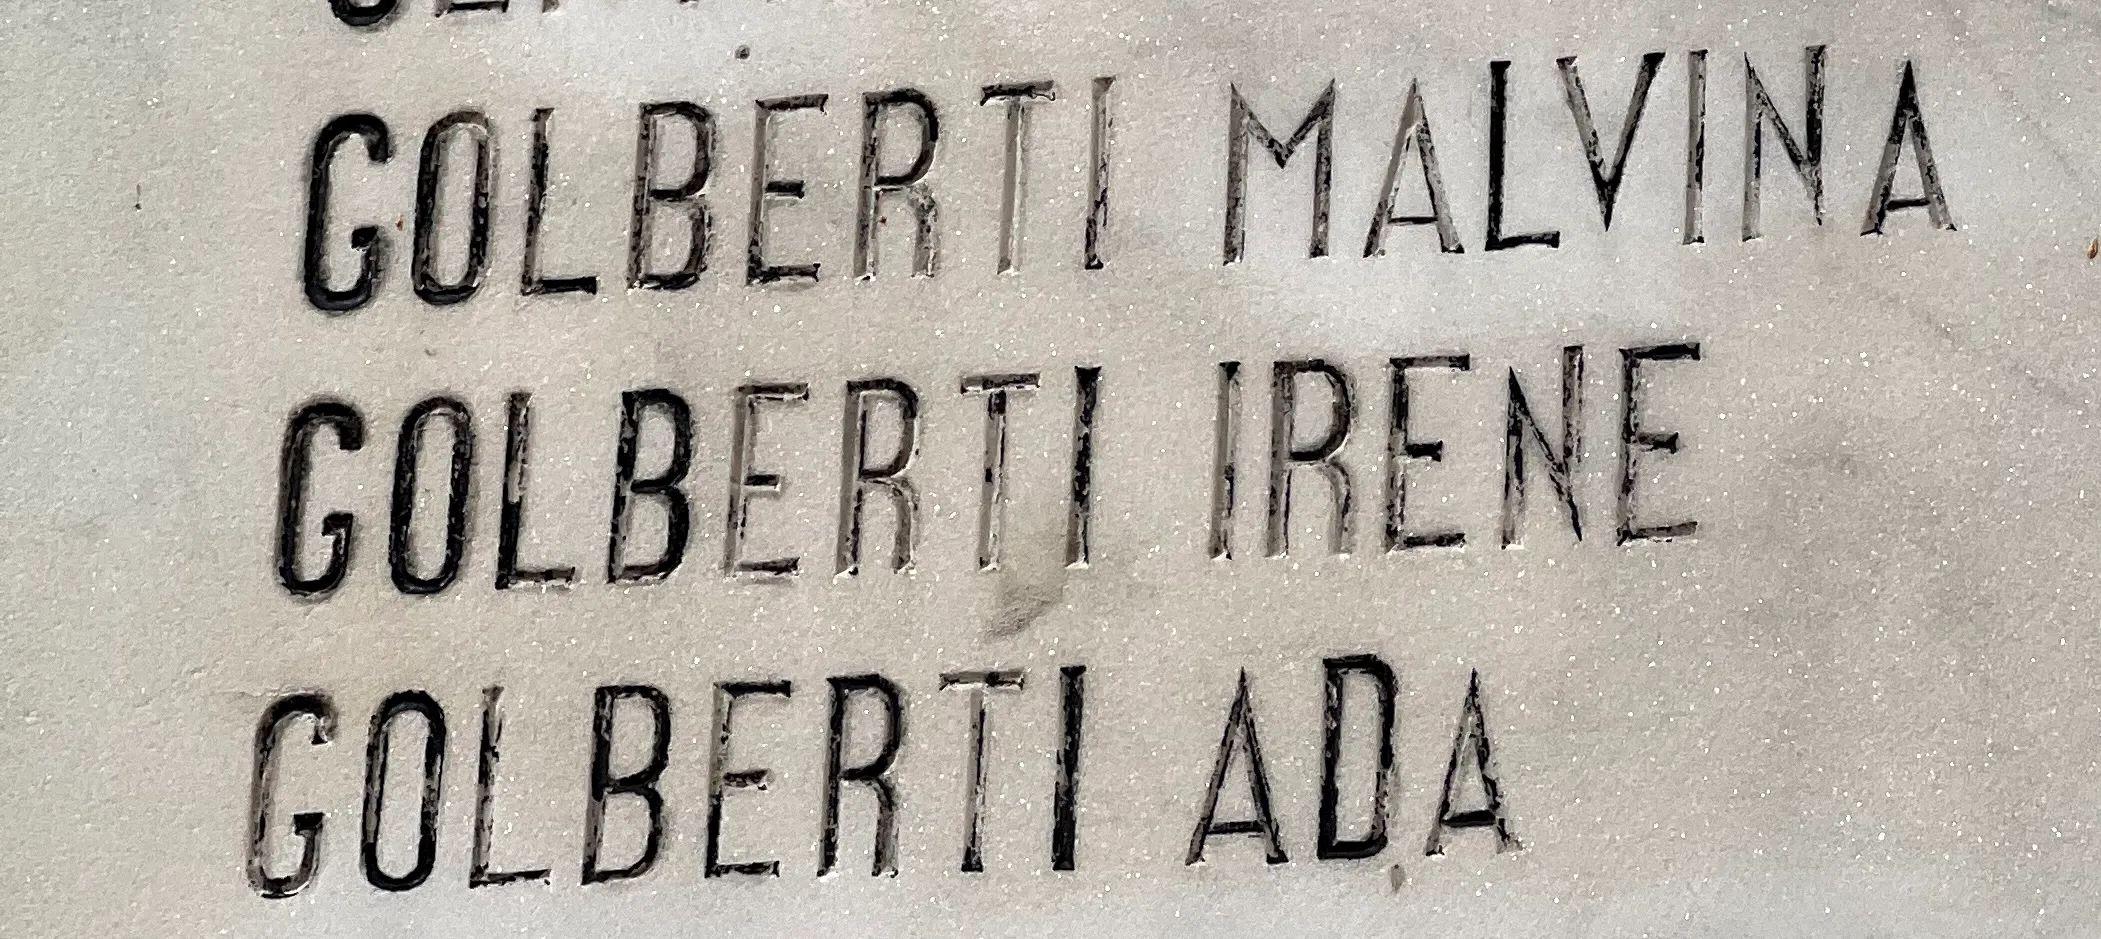 GOLBERTI MALVINA
GOLBERTI IRENE
GOLBERTI ADA